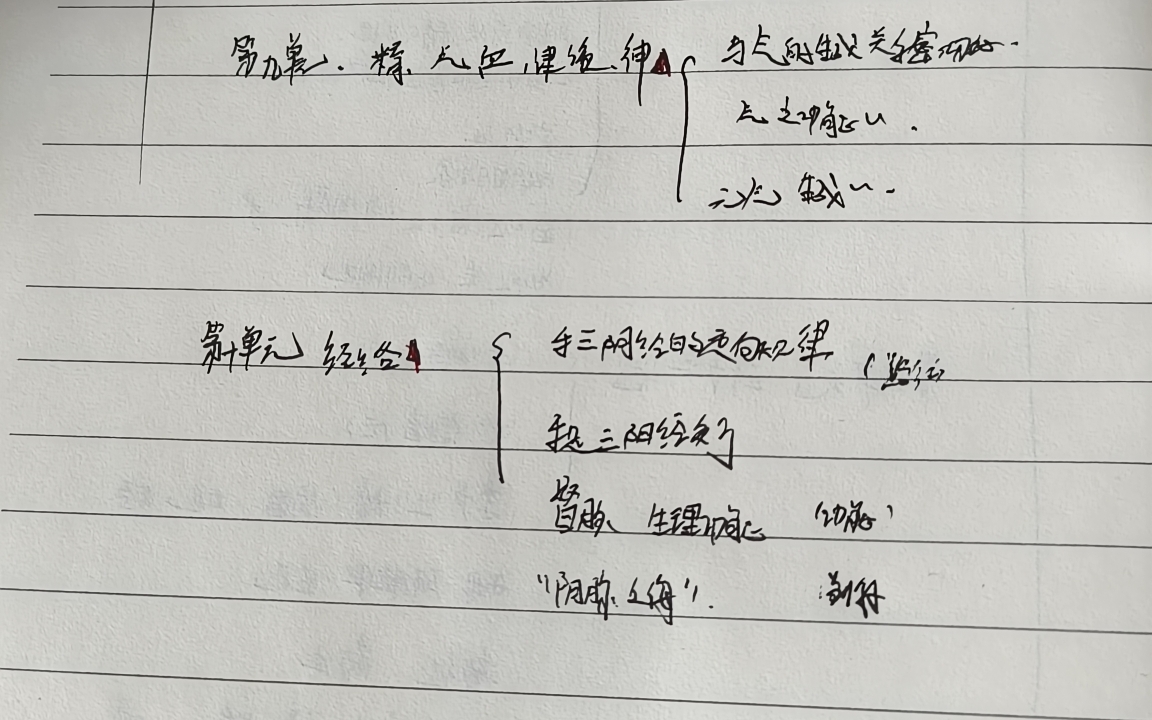 第九单元、精、气、血、津液、神
与气的生成关系密切的.
气之功能
元气 生成
第十单元 经络
手三阴经的走向规律
手足三阳经交于
督脉 生理功能 (功能)
"阴脉之海".